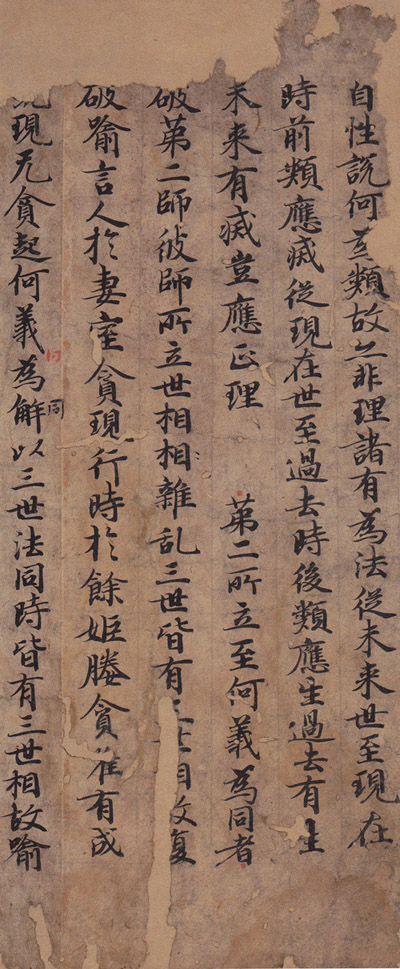 自性說何異類故亦非理諸有為法從未来世至現在
時前類應滅從現在世至過去時後類應生過去有生
未来有滅豈應正理　第二所立至何義為同者
破第二師彼師所立世相相雜乱三世皆有三世相故復
破喻言人於妻室貪現行時於餘姬媵貪唯有成
就現无貪起何義為解同以三世法同時皆有三世相故喻